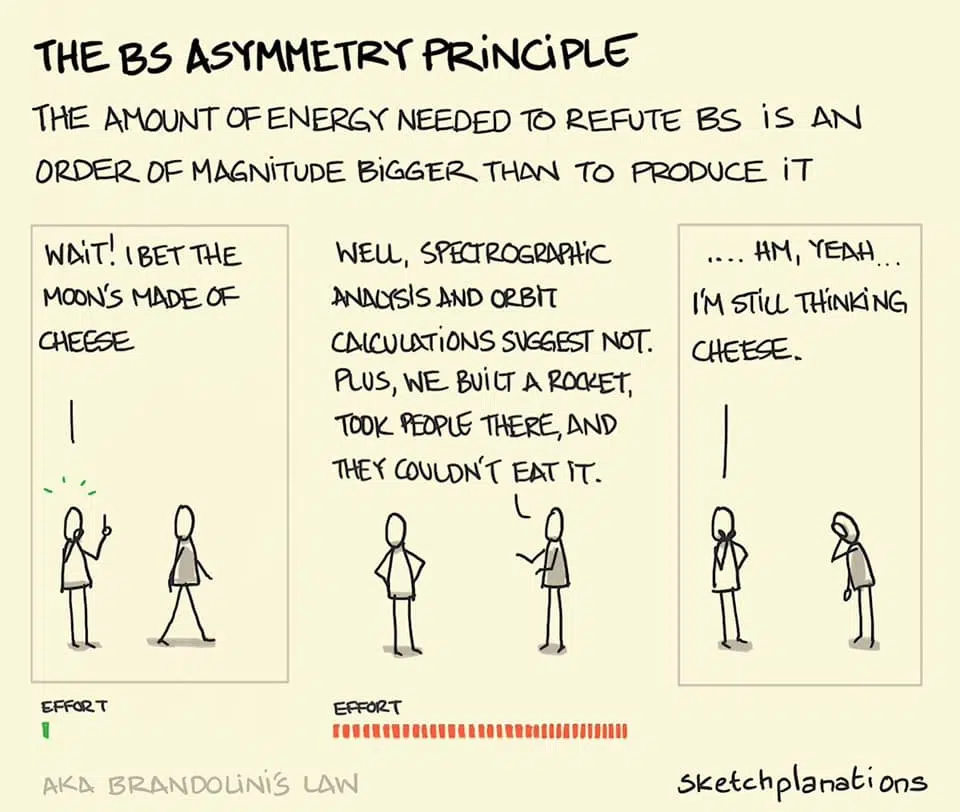 THE BS ASYMMETRY PRiNCiPLE
THE AMOUNT OF ENERGY NEEDED TO REFUTE BS iS AN
ORDER OF MAGNiTUDE BiGGER THAN TO PRODUCE iT
WAiT! I BET THE
MOON'S MADE OF
CHEESE
WELL, SPECTROGRAPHiC
ANALYSiS AND ORBiT
CALCULATiONS SUGGEST NOT.
PLUS, WE BUiLT A ROCKET,
TOOK PEOPLE THERE, AND
THEY COULDN'T EAT iT.
.... HM, YEAH...
I'M STiLL THiNKiNG
CHEESE.
EFFORT
EFFORT
AKA BRANDOLiNi'S LAW
sketchplanations